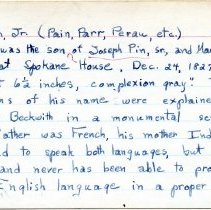 , Jr. (Pain, Parr, Perau, etc.)
was the son of Joseph Pin, sr, and Mar
at Spokane House, Dec. 24, 182
6½ inches, complexion gray."
ns of his name were explaine
Beckwith in a monumental se
ather was French, his mother Ind
d to speak both languages, but
and never has been able to pro
English language in a proper